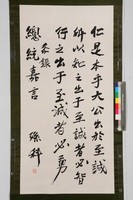 仁是本乎大公出於至誠
所以知之出于至誠者必智
行之出于至誠者必勇
恭錄
總統嘉言 孫科